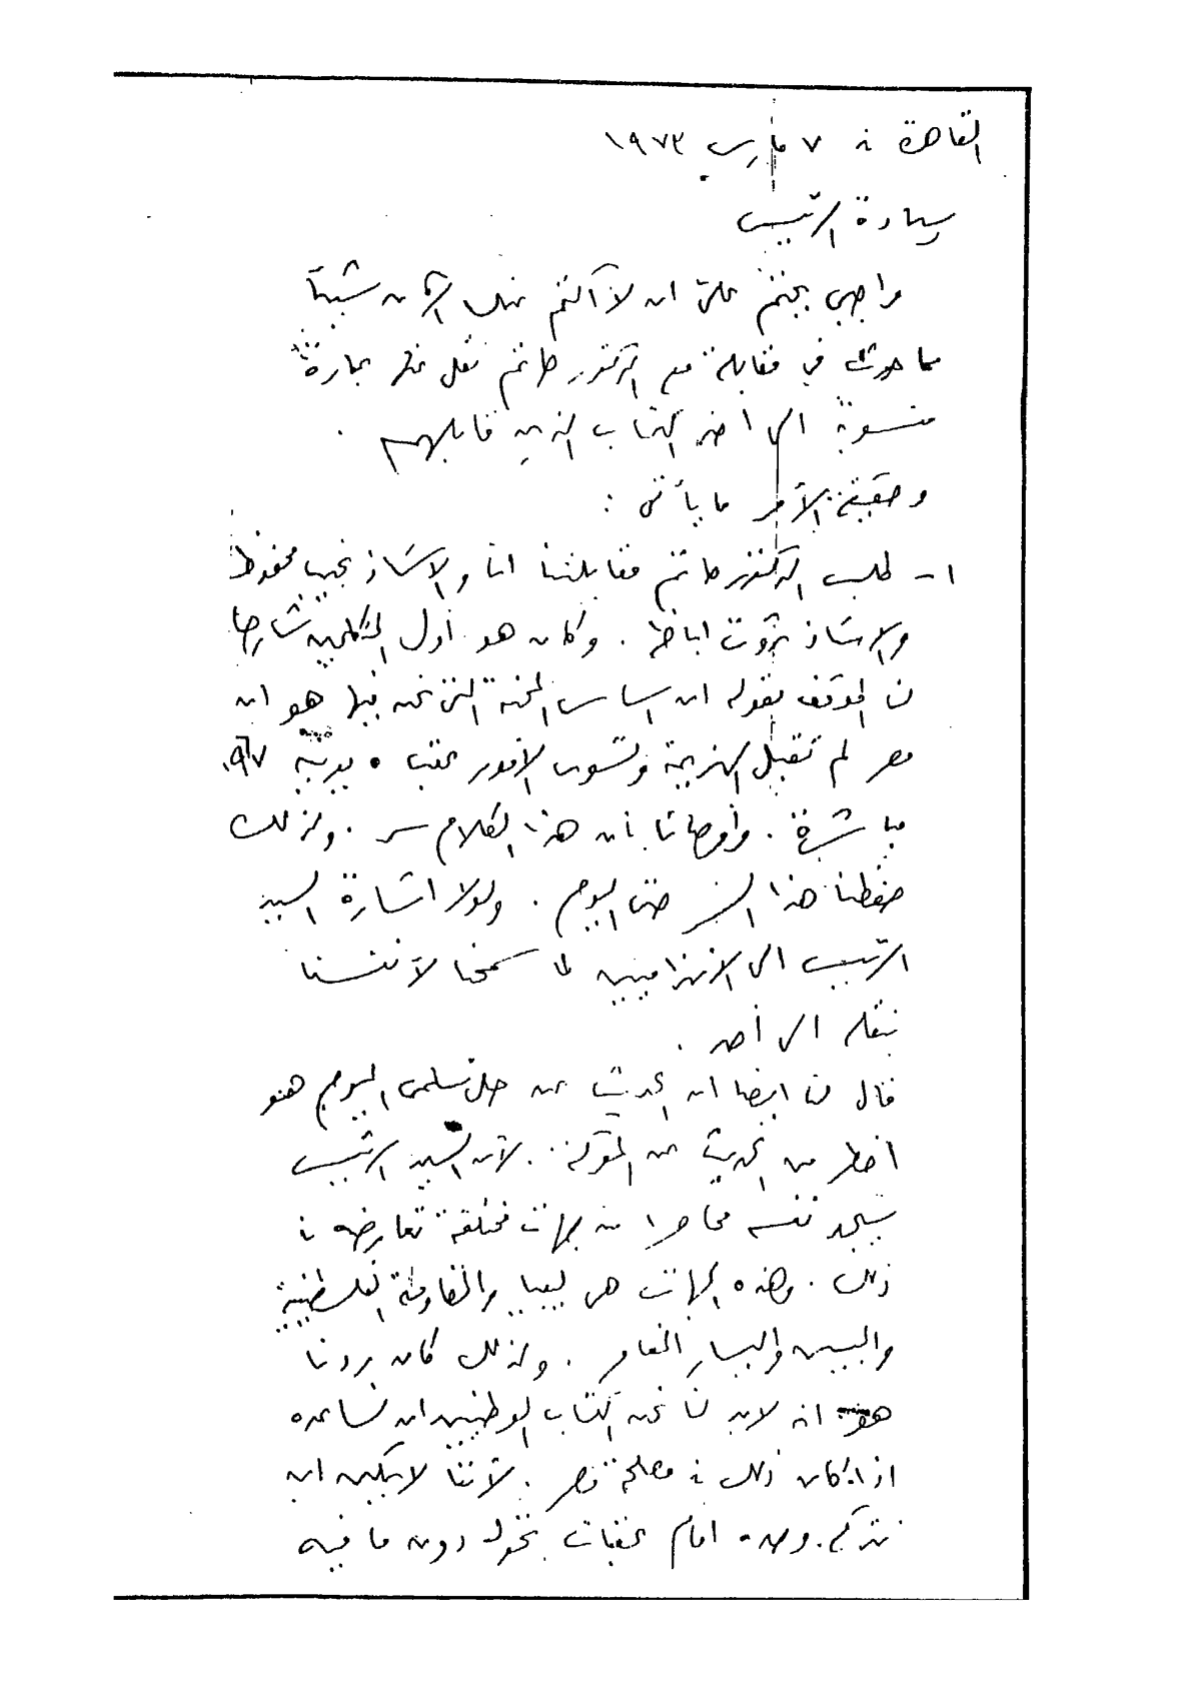 القاهرة في ٧ مارس ١٩٧٣
سيادة الرئيس
واجبي يحتم علىّ ان لا أكتم عنك الآن شيئاً
مما حدث في مقابلة مع الدكتور حاتم نقل عنها عبارة
منسوبة الى أخطر الكتاب الذين قابلهم .
وحقيقة الأمر ما يأتى :
١ - طلب الدكتور حاتم مقابلتنا انا والاستاذ نجيب محفوظ
والاستاذ ثروت اباظه . وكان هو أول المتكلمين شارحا
لنا الموقف بقوله ان اساس المحنة التى نحن فيها هو ان
مصر لم تقبل الهزيمة وتسوى الأمور عقب ٥ يونيه ١٩٦٧
مباشرة . وأوصانا بأن هذا الكلام سر . ولذلك
حفظنا هذا السر حتى اليوم . ولولا اشارة السيد
الرئيس الى الانهزاميين لما سمحنا لأنفسنا
بنقله الى أحد .
قال لنا ايضا ان الحديث عن حل سلمى اليوم هو
اخطر من الحديث عن المعركة . لأن السيد الرئيس
سيجد نفسه محاصرا من جهات مختلفة تعارضه في
ذلك . وهذه الجهات هى ليبيا والمقاومة الفلسطينية
واليمين واليسار المغامر . ولذلك كان ردنا
هو انه لابد لنا نحن الكتاب الوطنيين ان نساعده
اذا كان ذلك في مصلحة مصر . لأننا لا يمكن ان
نتركه وحده امام عقبات تحول دون ما فيه